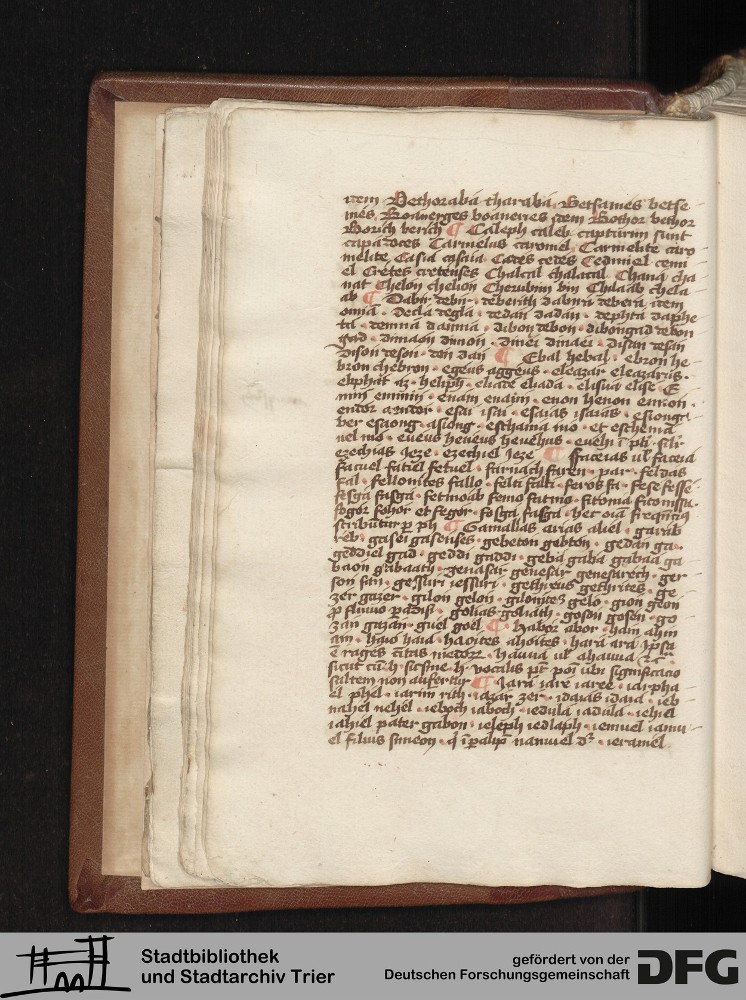 item Bethoraba tharaba. Betsames betse
mes. Boanerges boaneries item Bothor bethor
Borich berich ¶ Caleph caleb capturim sunt
capadoces Carmelus caromel. Carmelite caro
melite. Casia casaia Cates cedes Cedmiel cemi
el Cretes cretenses Chalcal chalacal Chana cha
nat Chelon chelion Cherubim bin Chilaab chela
ab ¶ Dabir debir · deberith dabira debera item
omia · decla degla · dedan dadan · dephta daphe
ta · demna damna · dibon debon · dibongad debon
gad · dimaon dimon · dinei dinaei · disan desan
dison deson · don dan ¶ Ebal hebal · ebron he
bron chebron · egeus aggeus · eleazar eleazarus ·
eliphat az · heliph · eliade eliada · elisua elise · E
mim emmin · enam enaim · enon henon ennon ·
endor aendor · esai isai · esaias isaias · esionga
ber esaong asiong · eschama mo · et eschema
uel mo · eueus heueus heuehus · euehi
ezechias Jeze · ezechiel Jeze ¶ ffaceias ul faceia
facuel fatuel fetuel · farnach faren · par · feldas
fal · fellonites fallo · felti falti · feros fa · fese fesse
fesga fasga · fetmoab femo fatmo · fitoma fitomissa
fogor fohor et fegor · fosga fasga · hec oia
scribuntur p ph ¶ Gamalias arias aliel · garib
reb · gasei gasenses · gebeton gebton · gedan ga ·
geddiel gad · geddi gaddi · geba gaba gabaa ga
baon gabaath · genasar genesar genesarech · ger
son fan · gessuri iessuri · gethreus gethrites · ge
zer gazer · gilon gelon · gilonites gelo · gion geon
p fluuio padisi · golias goliath · goson gosen · go
zan gazan · guel goel ¶ Habor abor · ham ahm
am · haio haia · haoites ahoites · hara ara
e rages ciuitas · hauua ul ahauua
sicut · h vocalis pt poni ubi significacio
saltem non aufertur ¶ Jara iare iaree · iarpha
el phel · iarim rith · iazar zer · idaias idaia · ieb
nahel nehel · ieboch iaboch · iedula iadula · iehiel
iahiel pater gabon · ieleph iedlaph · iemuel iamu
el filius simeon · q i palip namuel dr · ieramel
Stadtbibliothek
und Stadtarchiv Trier
gefördert von der
Deutschen Forschungsgemeinschaft
DFG